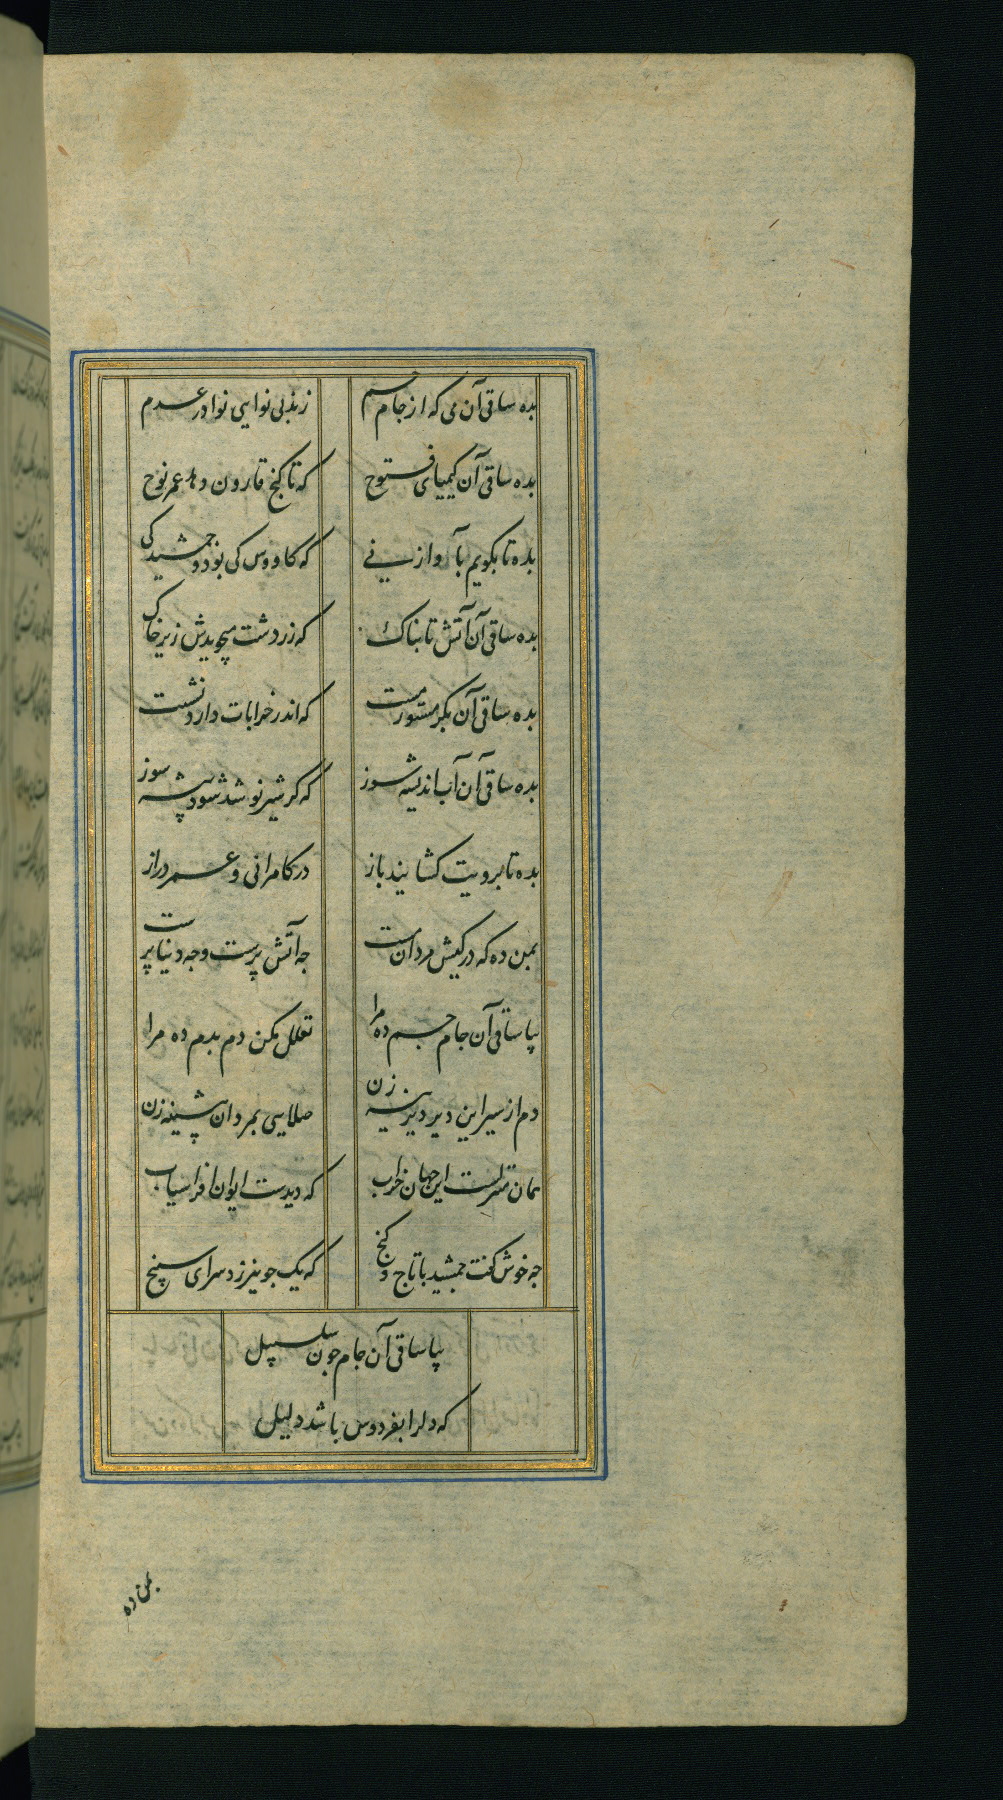 بده ساقی آن می که از جام جم زند بی نوایی نوا در عدم
بده ساقی آن کیمیای فتوح که تا کنج قارون دهد عمر نوح
بده تا بکویم بآواز نی که کاووس کی بود و جمشید کی
بده ساقی آن آتش تابناک که زردشت میجویدش زیر خاک
بده ساقی آن بکر مستور مست که اندر خرابات دارد نشست
بده ساقی آن آب اندیشه سوز که کر شیر نوشد شود بیشه سوز
بده تا برویت کشایند باز در کامرانی و عمر دراز
بمن ده که در کیش مردان مست جه آتش پرست وجه دنیا پرست
بیا ساقی آن جام جم ده مرا تعلل مکن دم بدم ده مرا
دم از سیر این دیر دیرینه زن صلایی بمردان پیشینه زن
همان منزلست این جهان خراب که دیدست ایوان افراسیاب
جه خوش کفت جمشید با تاج و کنج که یک جو نیرزد سرای سپنج
بیا ساقی آن جام جون سلسبیل
که دلرا بفردوس باشد دلیل
بمن ده